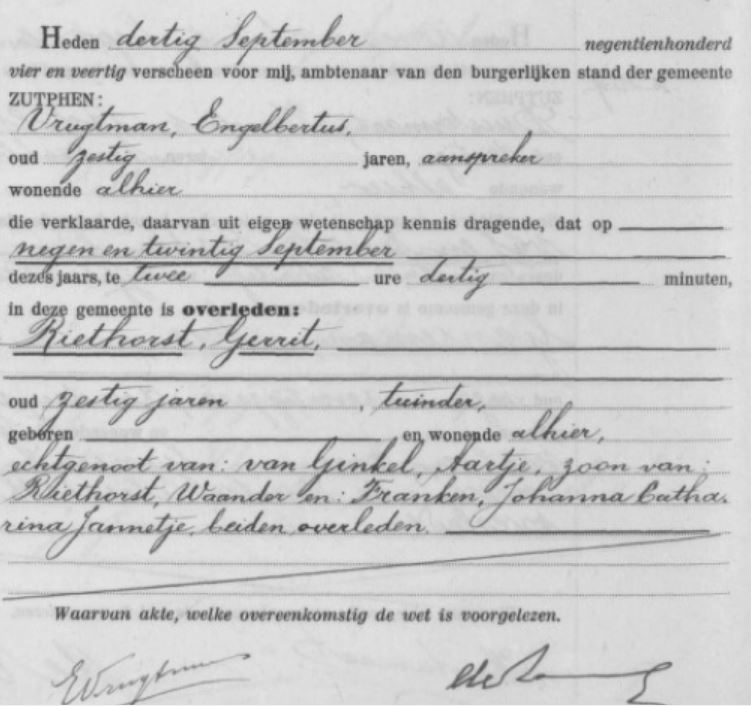 Heden dertig September negentienhonderd
vier en veertig verscheen voor mij, ambtenaar van den burgerlijken stand der gemeente
ZUTPHEN:
Vrugtman, Engelbertus,
oud zestig jaren, aanspreker
wonende alhier
die verklaarde, daarvan uit eigen wetenschap kennis dragende, dat op
negen en twintig September
dezes jaars, te twee ure dertig minuten,
in deze gemeente is overleden:
Riethorst, Gerrit,
oud zestig jaren, tuinder,
geboren en wonende alhier,
echtgenoot van: van Ginkel, Aartje, zoon van:
Riethorst, Waander en: Franken, Johanna Catha-
rina Jannetje, beiden overleden.
Waarvan akte, welke overeenkomstig de wet is voorgelezen.
EVrugtman